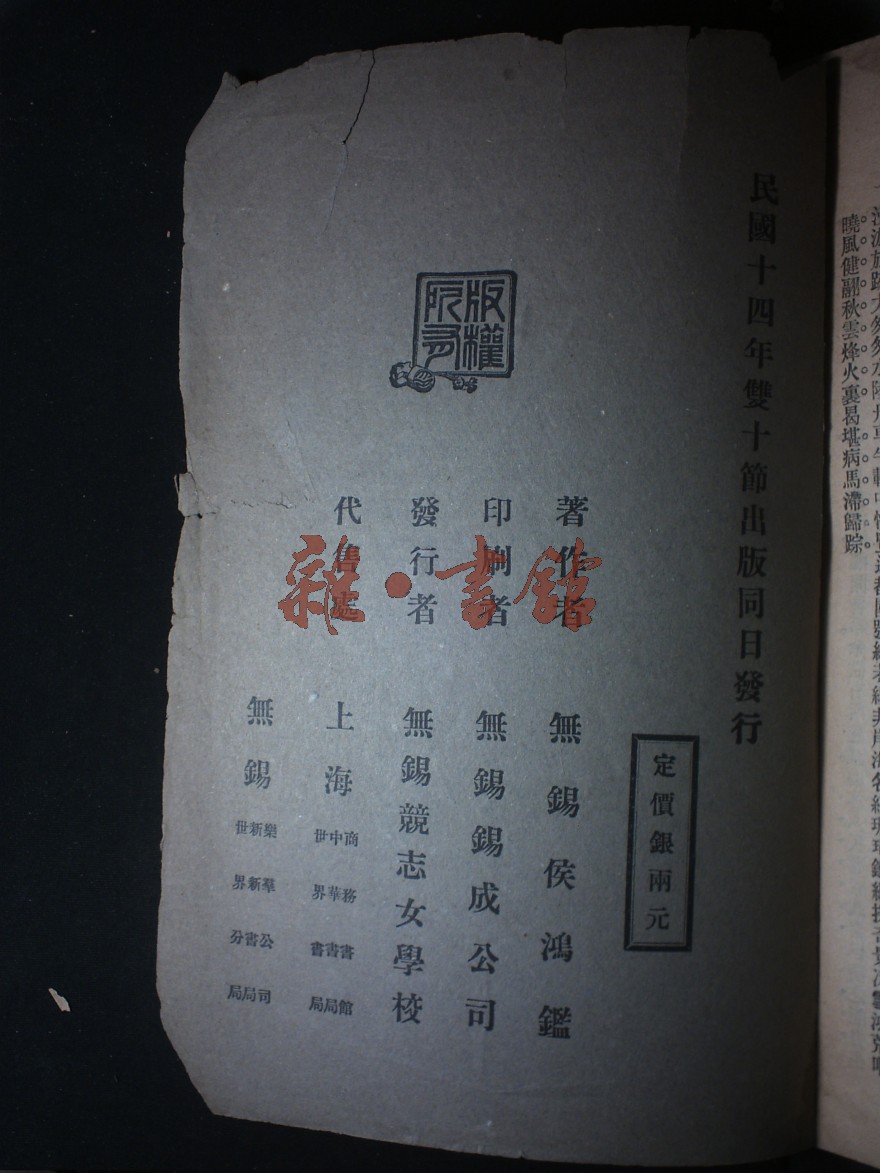 曉風健翮秋雲烽火裏曷堪病馬滯歸踪
民國十四年雙十節出版同日發行
定價銀兩元
版權所有
著作者 無錫侯鴻鑑
印刷者 無錫錫成公司
發行者 無錫競志女學校
代售處 上海
商務書館
中華書局
世界書局
無錫
樂羣公司
新新書局
世界分局
雜·書館